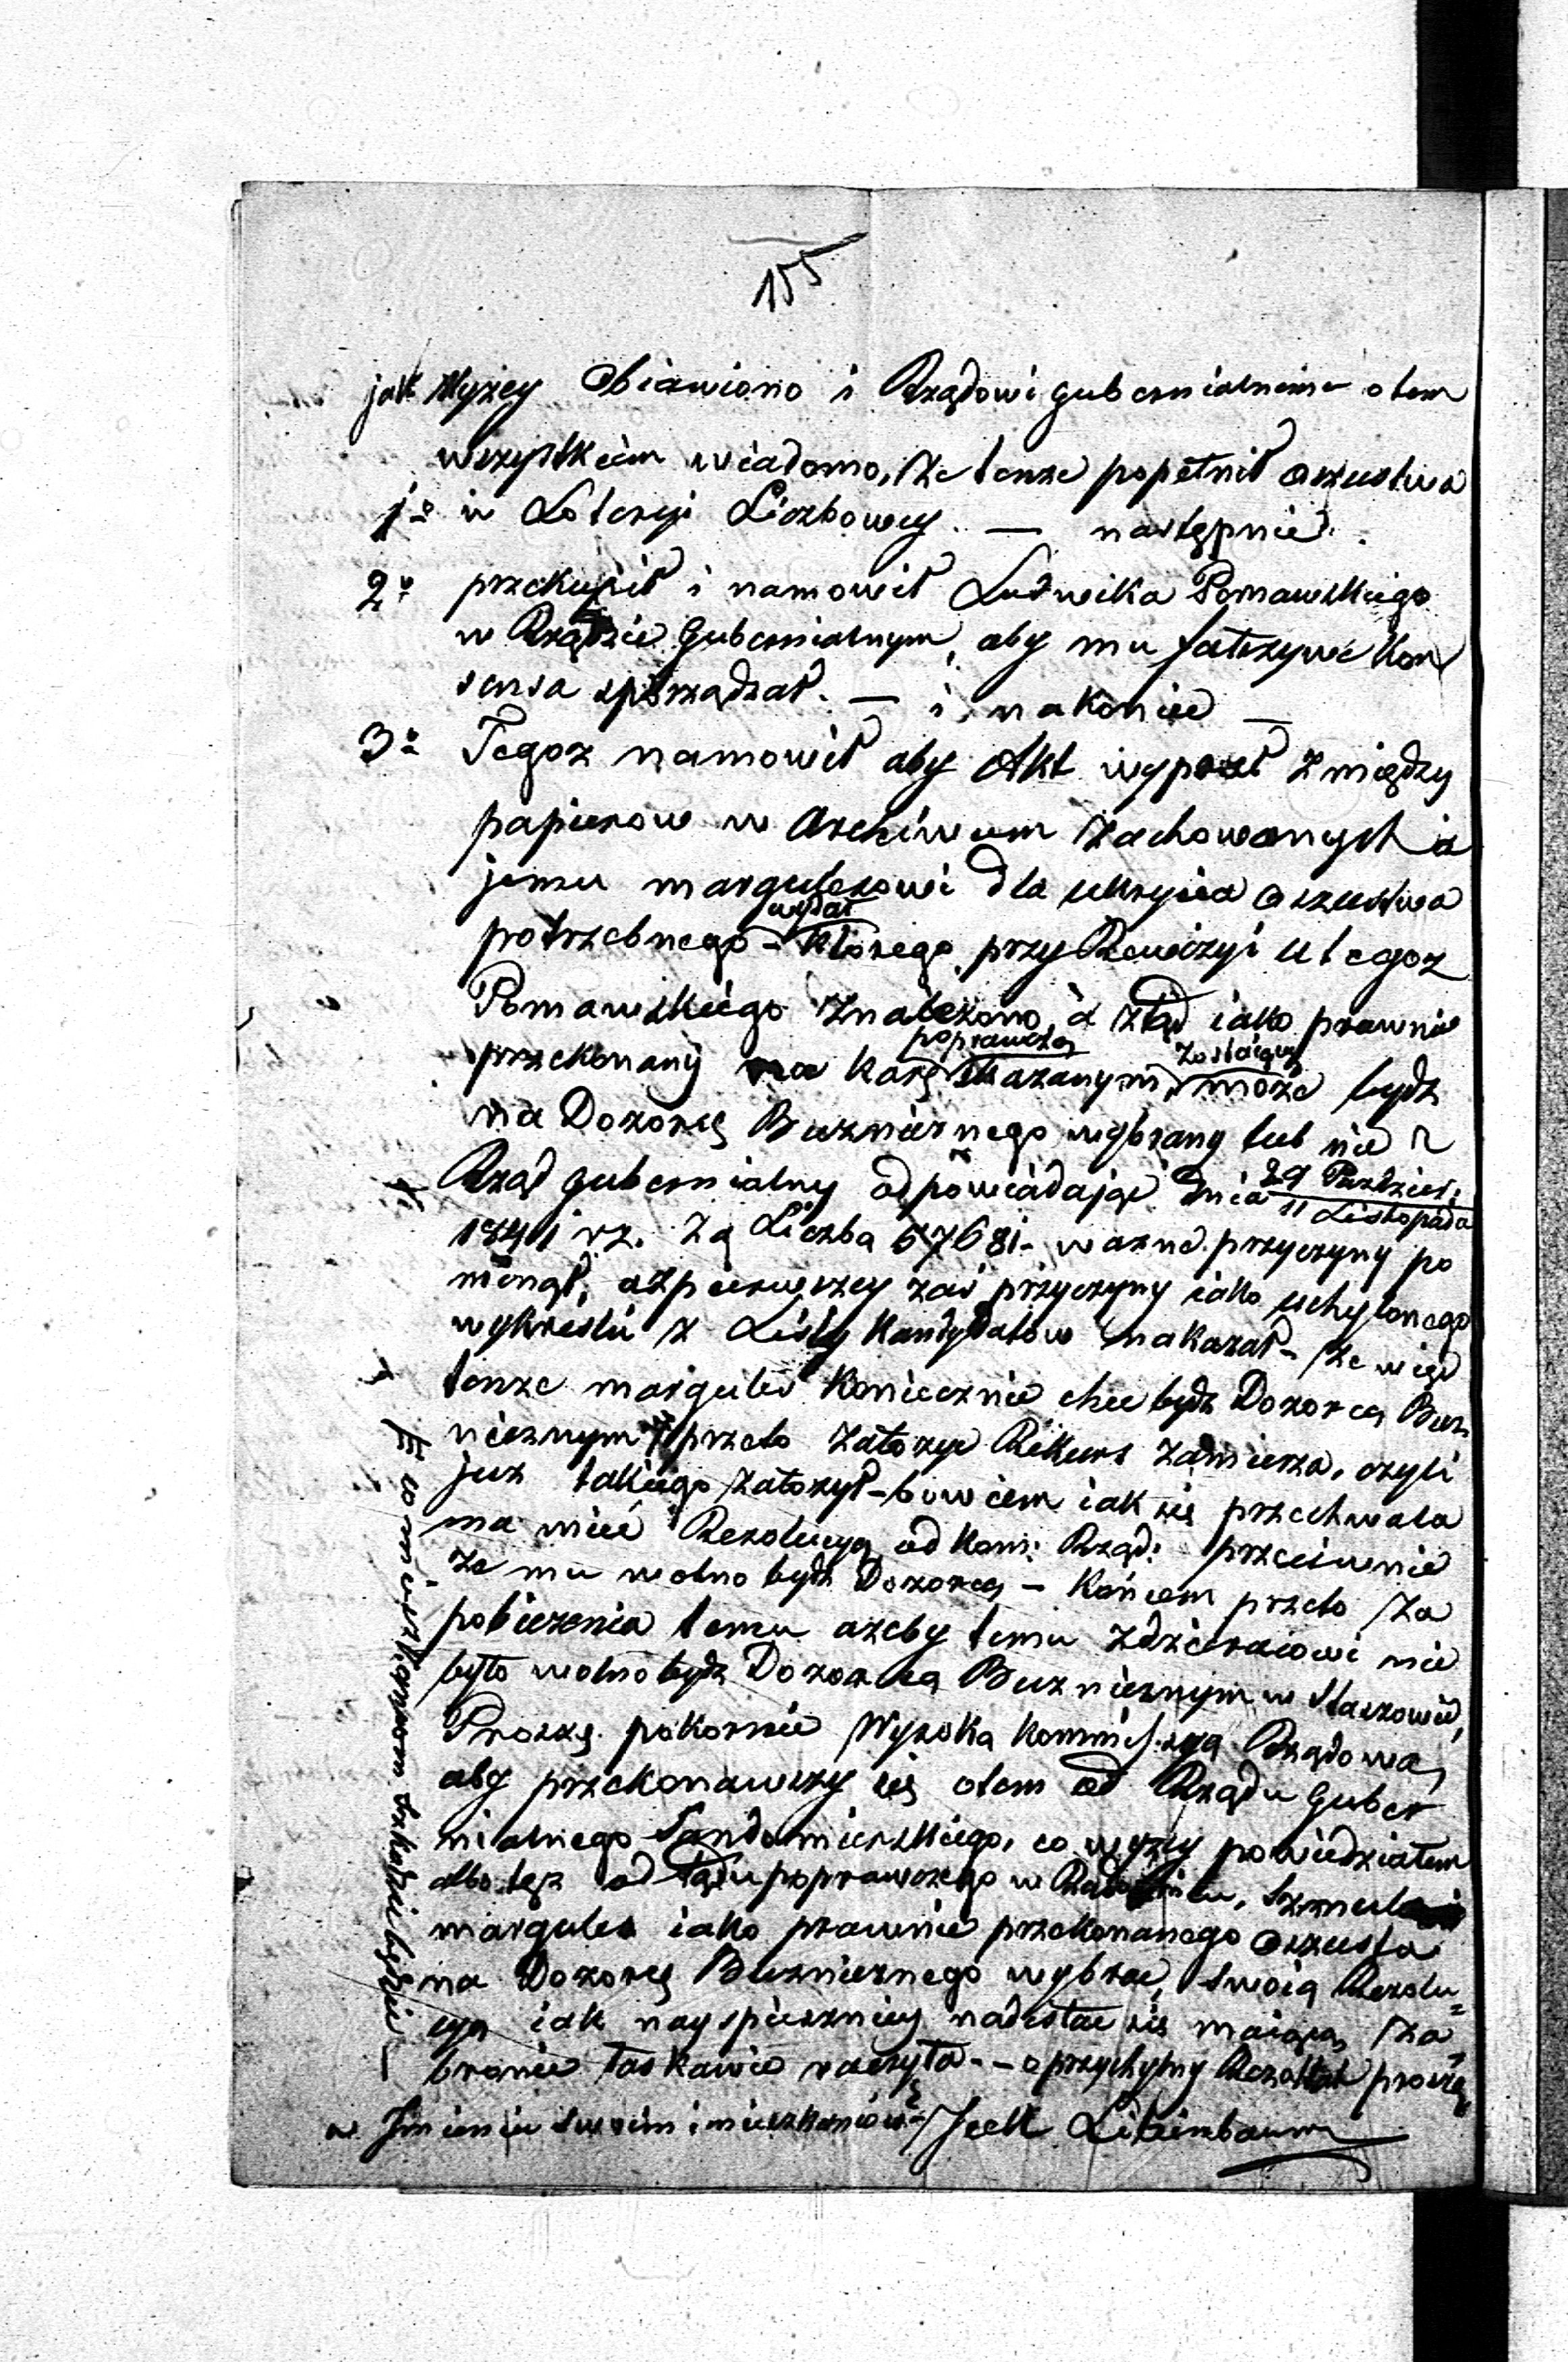 155
jak Wyżey Obiawiono i Rządowi gubernialnemu o tem
wszystkiem wiadomo, że tenże popełnił oszustwa
1o w Loteryi Liczbowey. — następnie.
2o przekupił i namowił Ludwika Pomawskiego
w Rządzie Gubernialnym, aby mu fałszywe kon
sensa sporządzał. — i nakoniec —
3o Tegoz namowił aby Akt wyprał z między
papierow w Archiwum zachowanych a
jemu margulesowi dla ukrycia oszustwa
wydał
potrzebnego - którego przy Rewizyi u tegoz
Pomawskiego znalezono, a ztąd iako prawnie
poprawczą zostaiący
przekonany na karę skazanym, może bydz
na Dozorcę Buznicznego wybrany lub nie?
Rząd gubernialny odpowiadając dnia 29 Paździer:
11 Listopada
1841 rz. Za Liczbą 67681 - ważne przyczyny po
minął, a zpierwszey zaś przyczyny iako uchylonego
wykreslić z Listy Kandydatów nakazał - że więc
tenże margules koniecznie chce bydz Dozorcą Buz
nicznym przeto założyc Rekurs zamierza, czyli
juz takiego założył - bowiem iak się przechwala
ma mieć Rezolucyą od Kom: Rząd: przeciwnie
że mu wolno bydz Dozorcą - Końcem przeto za
pobieżenia temu ażeby temu zdziercowi nie
było wolno bydz Dozorcą Buznicznym w Staszowie,
Proszę pokornie Wysoka Kommissya Rządowa,
aby przekonawszy się otem od Rządu Guber
nialnego Sandomierskiego, co wyżey powiedziałem
albo też od Sądu poprawczego w Radomiu, Szmula
margules iako prawnie przekonanego oszusta
na Dozorcę Buznicznego wybrac, swoią Rezolu=
cyą iak nayspieszniey nadesłac się maiącą za=
bronic łaskawie raczyła - - o przychylny Rezultat proszę
w Imieniu swoim i mieszkańców - Josek Litenbaum
co mieszkancom szkodzi bydzie —